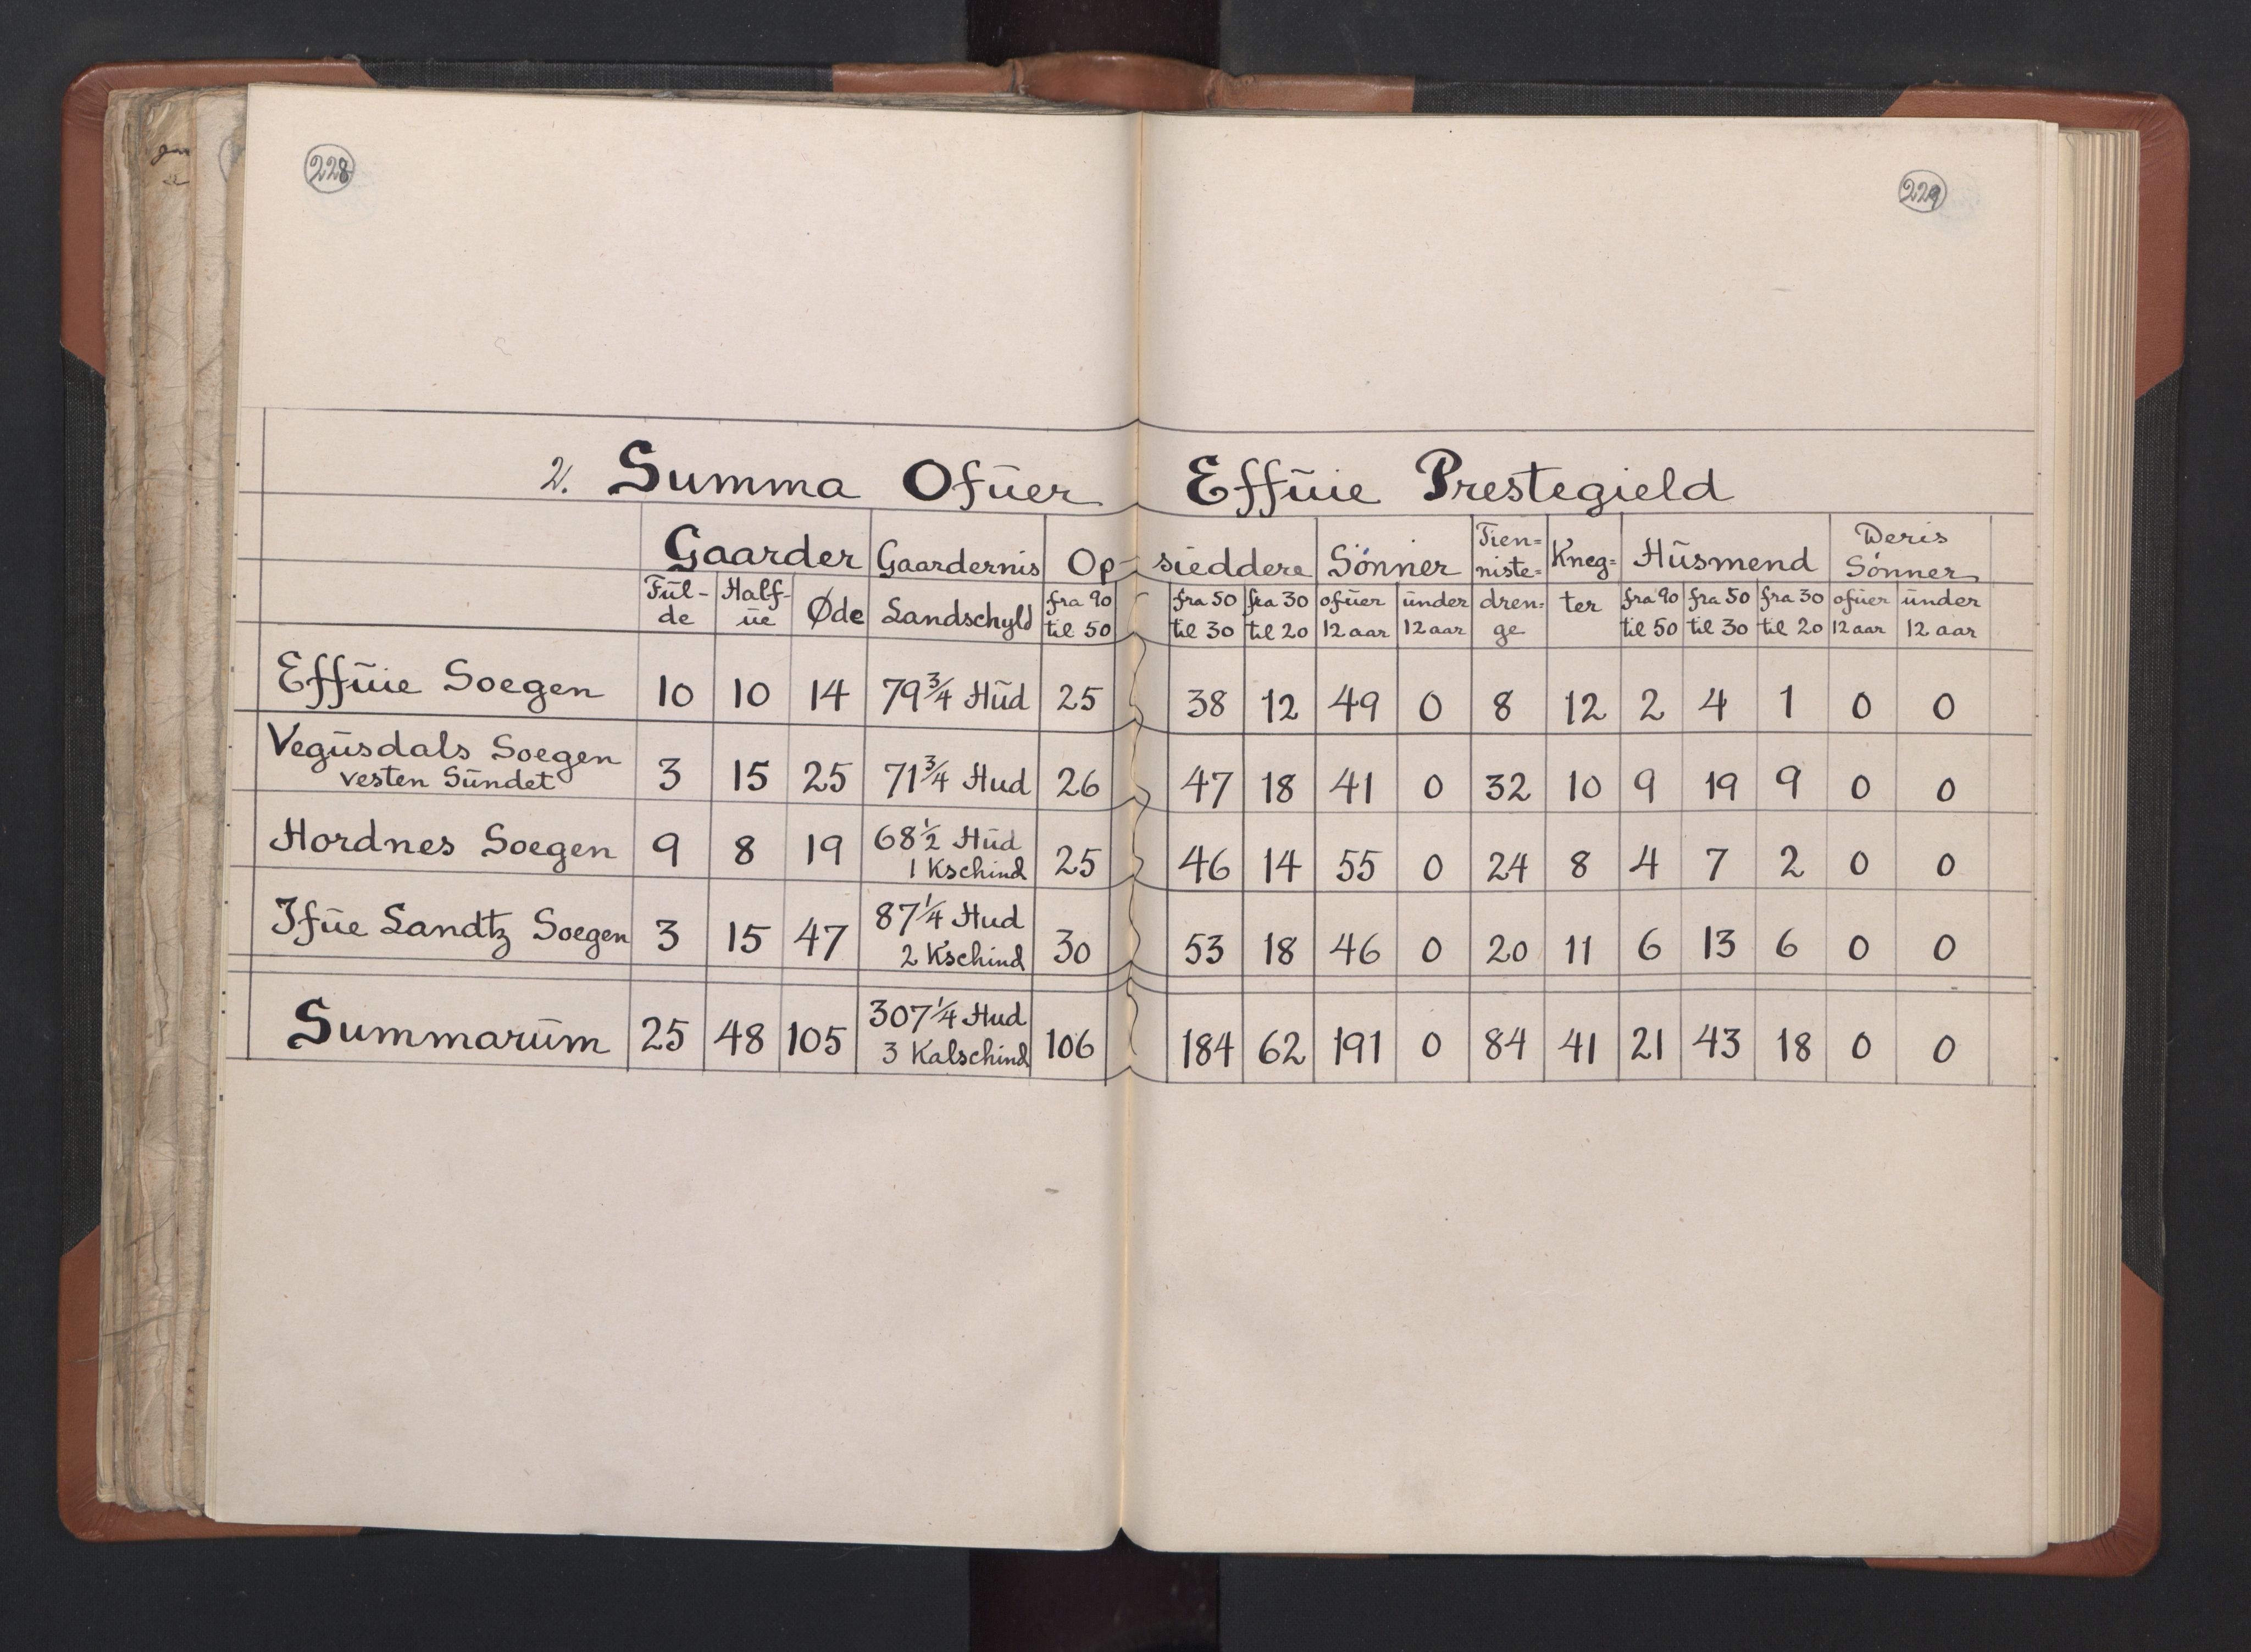 228
229
2. Summa Ofŭer Effŭie Prestegield
Gaarder Gaardernis Op- sieddere Sönner Tien= Kneg= Hŭsmend Deris
niste= Sönner
Fŭl- Half- Øde Landschyld fra 90 fra 50 fra 30 ofŭer ŭnder dren= ter fra 90 fra 50 fra 30 ofŭer ŭnder
de ŭe til 50 til 30 til 20 12 aar 12 aar ge til 50 til 30 til 20 12 aar 12 aar
Effŭie Soegen 10 10 14 79 3/4 Hŭd 25 38 12 49 0 8 12 2 4 1 0 0
Vegŭsdals Soegen
vesten Sŭndet 3 15 25 71 3/4 Hud 26 47 18 41 0 32 10 9 19 9 0 0
Hordnes Soegen 9 8 19 68 1/2 Hŭd 25 46 14 55 0 24 8 4 7 2 0 0
1 Kschind
Ifŭe Landtz Soegen 3 15 47 87 1/4 Hud 30 53 18 46 0 20 11 6 13 6 0 0
2 Kschind
Summarŭm 25 48 105 307 1/4 Hud 106 184 62 191 0 84 41 21 43 18 0 0
3 Kalschind